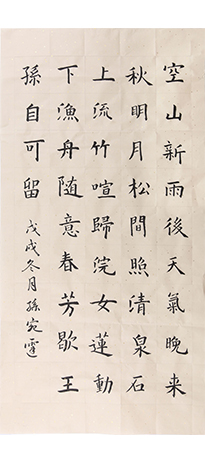 空山新雨後天氣晚来
秋明月松間照清泉石
上流竹喧歸浣女蓮動
下漁舟隨意春芳歇王
孫自可留
戊戌冬月孫宛霆